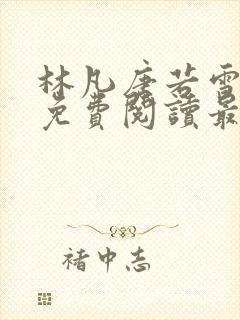 林凡唐若雪
免費閱讀最
褚中志